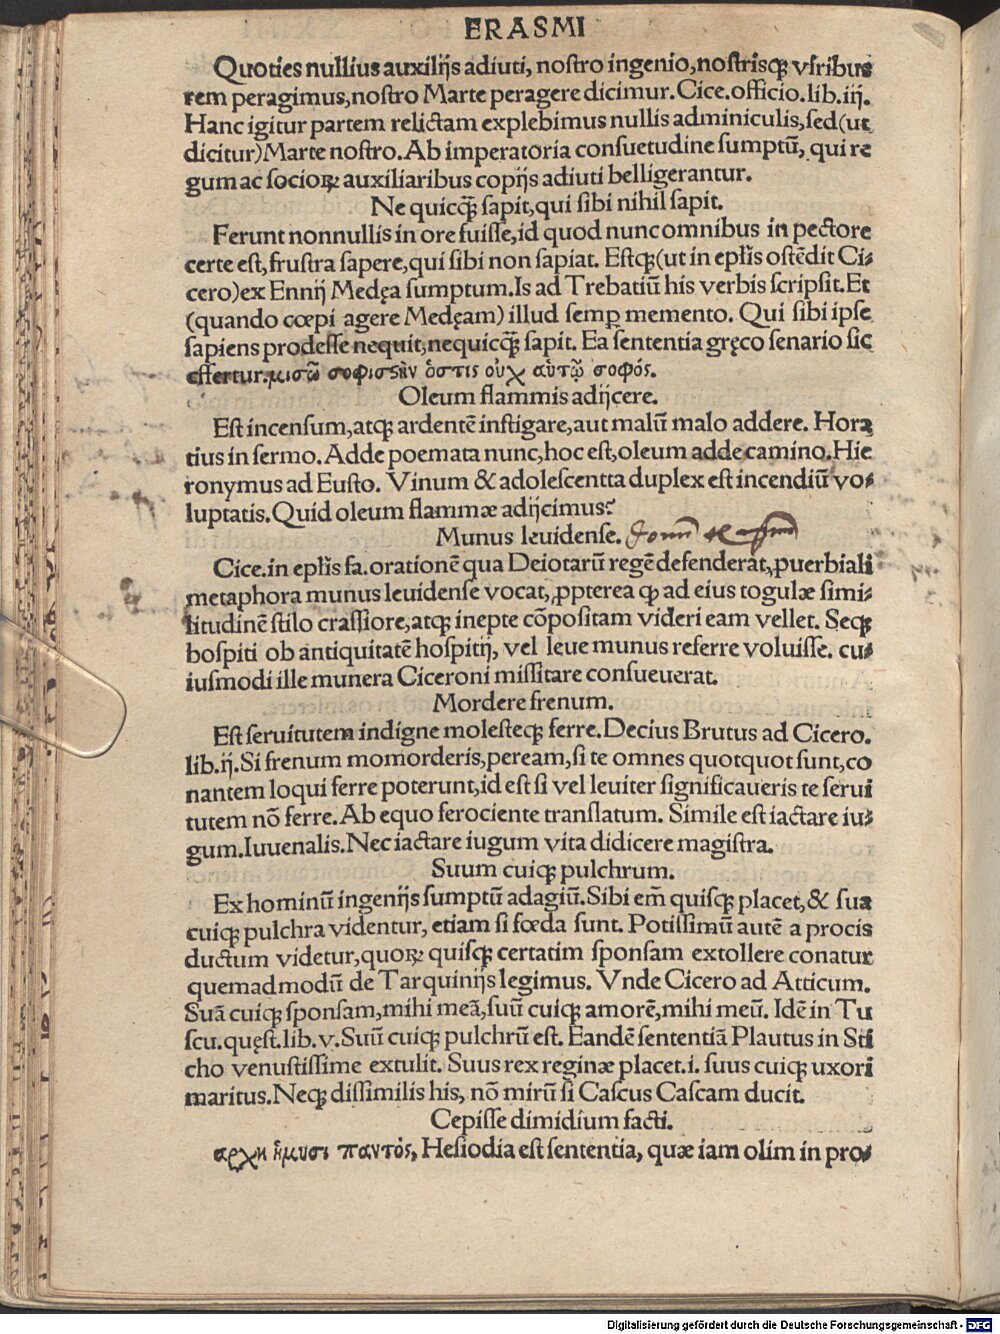 ERASMI
Quoties nullius auxilijs adiuti, nostro ingenio, nostrisqꝫ viribus
rem peragimus, nostro Marte peragere dicimur. Cice. officio. lib. iij.
Hanc igitur partem relictam explebimus nullis adminiculis, sed (ut
dicitur) Marte nostro. Ab imperatoria consuetudine sumptū, qui re
gum ac socioꝝ auxiliaribus copijs adiuti belligerantur.
Ne quicqꝫ̃ sapit, qui sibi nihil sapit.
Ferunt nonnullis in ore fuisse, id quod nunc omnibus in pectore
certe est, frustra sapere, qui sibi non sapiat. Estqꝫ (ut in ep̄lis ostēdit Ci⸗
cero) ex Ennij Medęa sumptum. Is ad Trebatiū his verbis scripsit. Et
(quando cœpi agere Medęam) illud semꝑ memento. Qui sibi ipse
sapiens prodesse nequit, nequicqꝫ̃ sapit. Ea sententia gręco senario sic
effertur. μισῶ σοφιστὴν ὁστις οὐχ αὑτῷ σοφός.
Oleum flammis adijcere.
Est incensum, atqꝫ ardentē instigare, aut malū malo addere. Hora
tius in sermo. Adde poemata nunc, hoc est, oleum adde camino. Hie
ronymus ad Eusto. Vinum & adolescentta duplex est incendiū vo⸗
luptatis. Quid oleum flammæ adijcimus?
Munus leuidense.
Cice. in ep̄lis fa. orationē qua Deiotarū regē defenderat, ꝓuerbiali
metaphora munus leuidense vocat, ꝓpterea ꝙ ad eius togulæ simi⸗
litudinē stilo crassiore, atqꝫ inepte cōpositam videri eam vellet. Seqꝫ
hospiti ob antiquitatē hospitij, vel leue munus referre voluisse. cu⸗
iusmodi ille munera Ciceroni missitare consueuerat.
Mordere frenum.
Est seruitutem indigne molesteqꝫ ferre. Decius Brutus ad Cicero.
lib. ij. Si frenum momorderis, peream, si te omnes quotquot sunt, co
nantem loqui ferre poterunt, id est si vel leuiter significaueris te serui
tutem nō ferre. Ab equo ferociente translatum. Simile est iactare iu⸗
gum. Iuuenalis. Nec iactare iugum vita didicere magistra.
Suum cuiqꝫ pulchrum.
Ex hominū ingenijs sumptū adagiū. Sibi em̄ quisqꝫ placet, & sua
cuiqꝫ pulchra videntur, etiam si fœda sunt. Potissimū autē a procis
ductum videtur, quoꝝ quisqꝫ certatim sponsam extollere conatur
quemadmodū de Tarquinijs legimus. Vnde Cicero ad Atticum.
Suā cuiqꝫ sponsam, mihi meā, suū cuiqꝫ amorē, mihi meū. Idē in Tu
scu. quęst. lib. v. Suū cuiqꝫ pulchrū est. Eandē sententiā Plautus in Sti
cho venustissime extulit. Suus rex reginæ placet. i. suus cuiqꝫ uxori
maritus. Neqꝫ dissimilis his, nō mirū si Cascus Cascam ducit.
Cepisse dimidium facti.
αρχη ἥμυσι παντὸς, Hesiodia est sententia, quæ iam olim in pro⸗
Digitalisierung gefördert durch die Deutsche Forschungsgemeinschaft - DFG